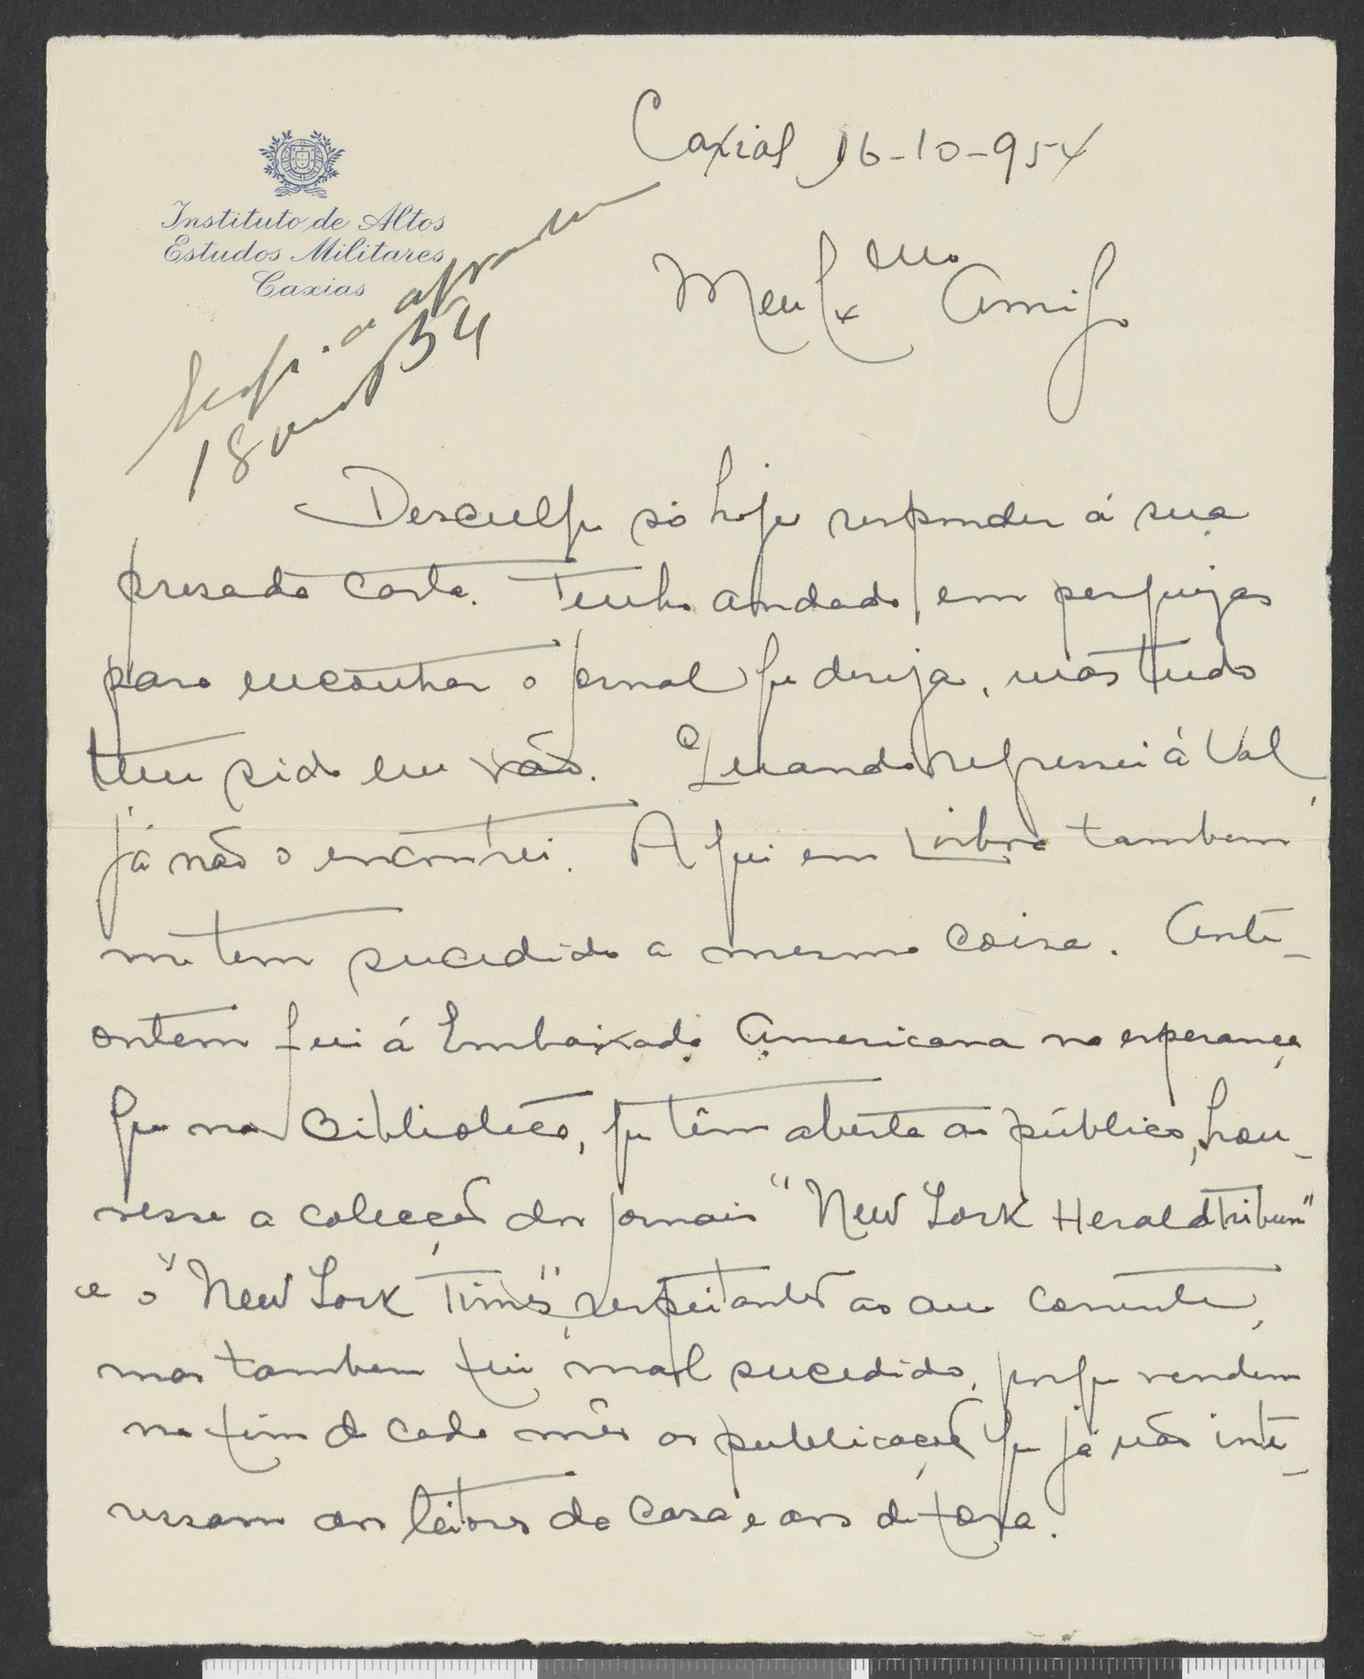 Caxias 16-10-954
Instituto de Altos
Estudos Militares
Caxias
Resp. a agradecer
18 out 54
Meu Exmo Amigo
Desculpe só hoje responder á sua
presada carta. Tenho andado em pesquizas
para encontrar o jornal que deseja, mas tudo
tem sido em vão. Quando regressei á Val
já não o encontrei. Aqui em Lisboa tambem
me tem sucedido a mesma coisa. Ante-
ontem fui á Embaixada Americana na esperança
que na Biblioteca, que têm aberta ao público, hou-
vesse a colecção dos jornais "New York Herald Tribun"
e o "New York Times", respeitantes ao ano corrente,
mas tambem fui mal sucedido, porque vendem
no fim de cada mês as publicações que já não inte-
ressam aos leitores da casa e aos de fora.